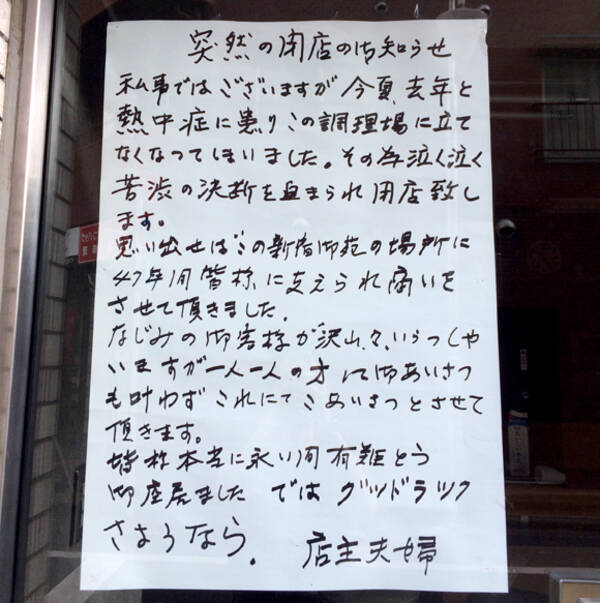 突然の閉店の御知らせ
私事ではございますが今夏、去年と
熱中症に患りこの調理場に立て
なくなってしまいました。その為泣く泣く
苦渋の決断を迫まられ閉店致し
ます。
思い出せばこの新宿御苑の場所に
47年間皆様に支えられ商いを
させて頂きました。
なじみの御客様が沢山々、いらっしゃ
いますが一人一人の方に御あいさつ
も叶わずこれにてごあいさつとさせて
頂きます。
皆様本当に永い間有難とう
御座居ました ではグッドラック
さようなら。 店主夫婦